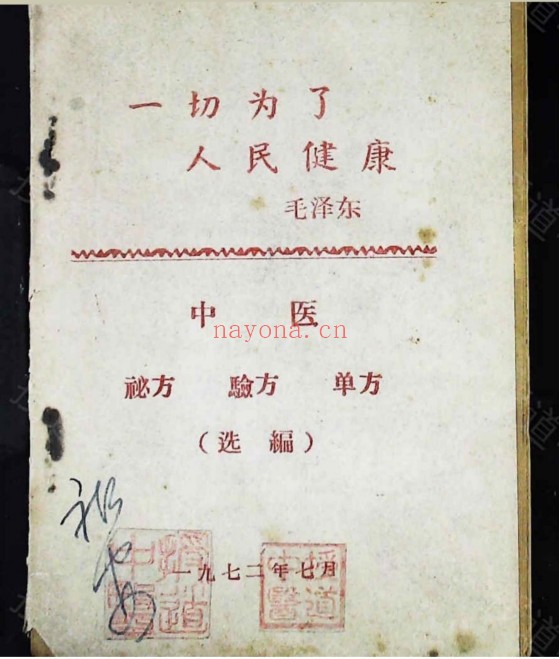 一切为了
人民健康
毛泽东
中医
nayona.cn
祕方 驗方 单方
（选編）
一九七二年七月
授道
中醫
授道
中醫